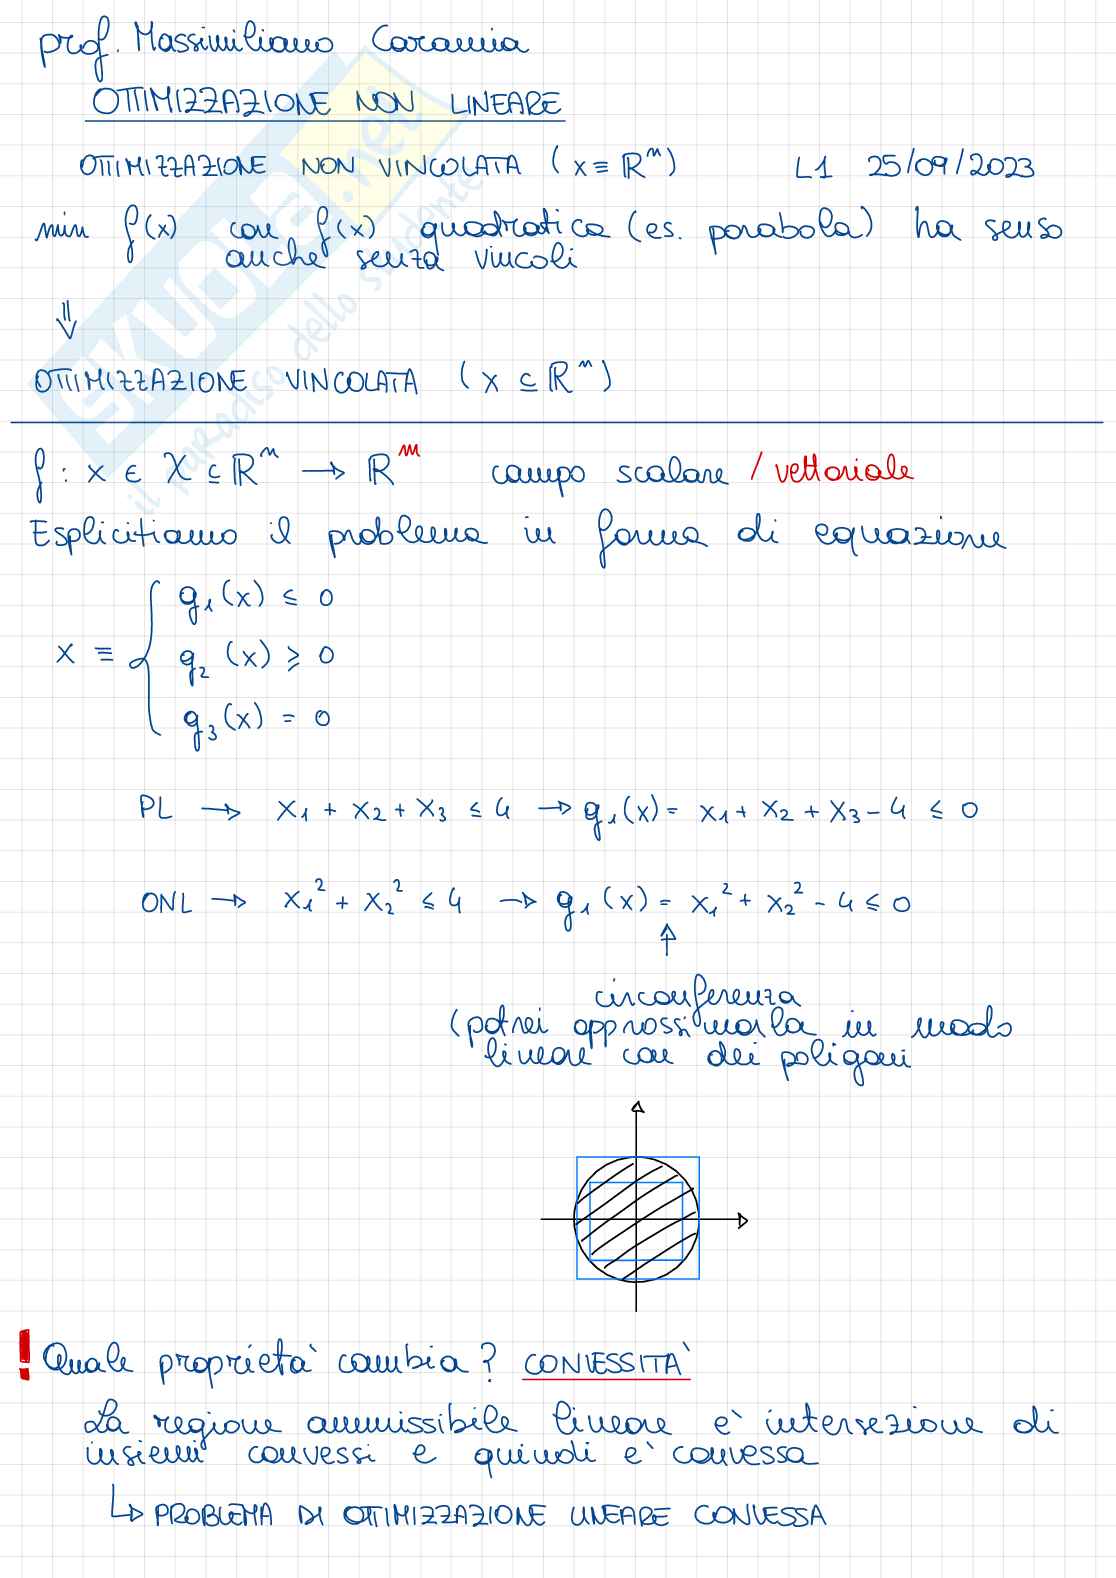 prof. Massimiliano Caramia
OTTIMIZZAZIONE NON LINEARE
OTTIMIZZAZIONE NON VINCOLATA (x ≡ ℝⁿ) L1 25/09/2023
min f(x) con f(x) quadratica (es. parabola) ha senso
anche senza vincoli
⇓
OTTIMIZZAZIONE VINCOLATA (x ⊆ ℝⁿ)
f : x ∈ X ⊆ ℝⁿ → ℝᵐ campo scalare / vettoriale
Esplicitiamo il problema in forma di equazione
g₁(x) ≤ 0
x ≡ { g₂(x) ≥ 0
g₃(x) = 0
PL → x₁ + x₂ + x₃ ≤ 4 → g₁(x) = x₁ + x₂ + x₃ - 4 ≤ 0
ONL → x₁² + x₂² ≤ 4 → g₁(x) = x₁² + x₂² - 4 ≤ 0
↑
circonferenza
(potrei approssimarla in modo
lineare con dei poligoni
! Quale proprietà cambia? CONVESSITÀ
La regione ammissibile lineare è intersezione di
insiemi convessi e quindi è convessa
↳ PROBLEMA DI OTTIMIZZAZIONE LINEARE CONVESSA
SKUOLA.net
il paradiso dello studente